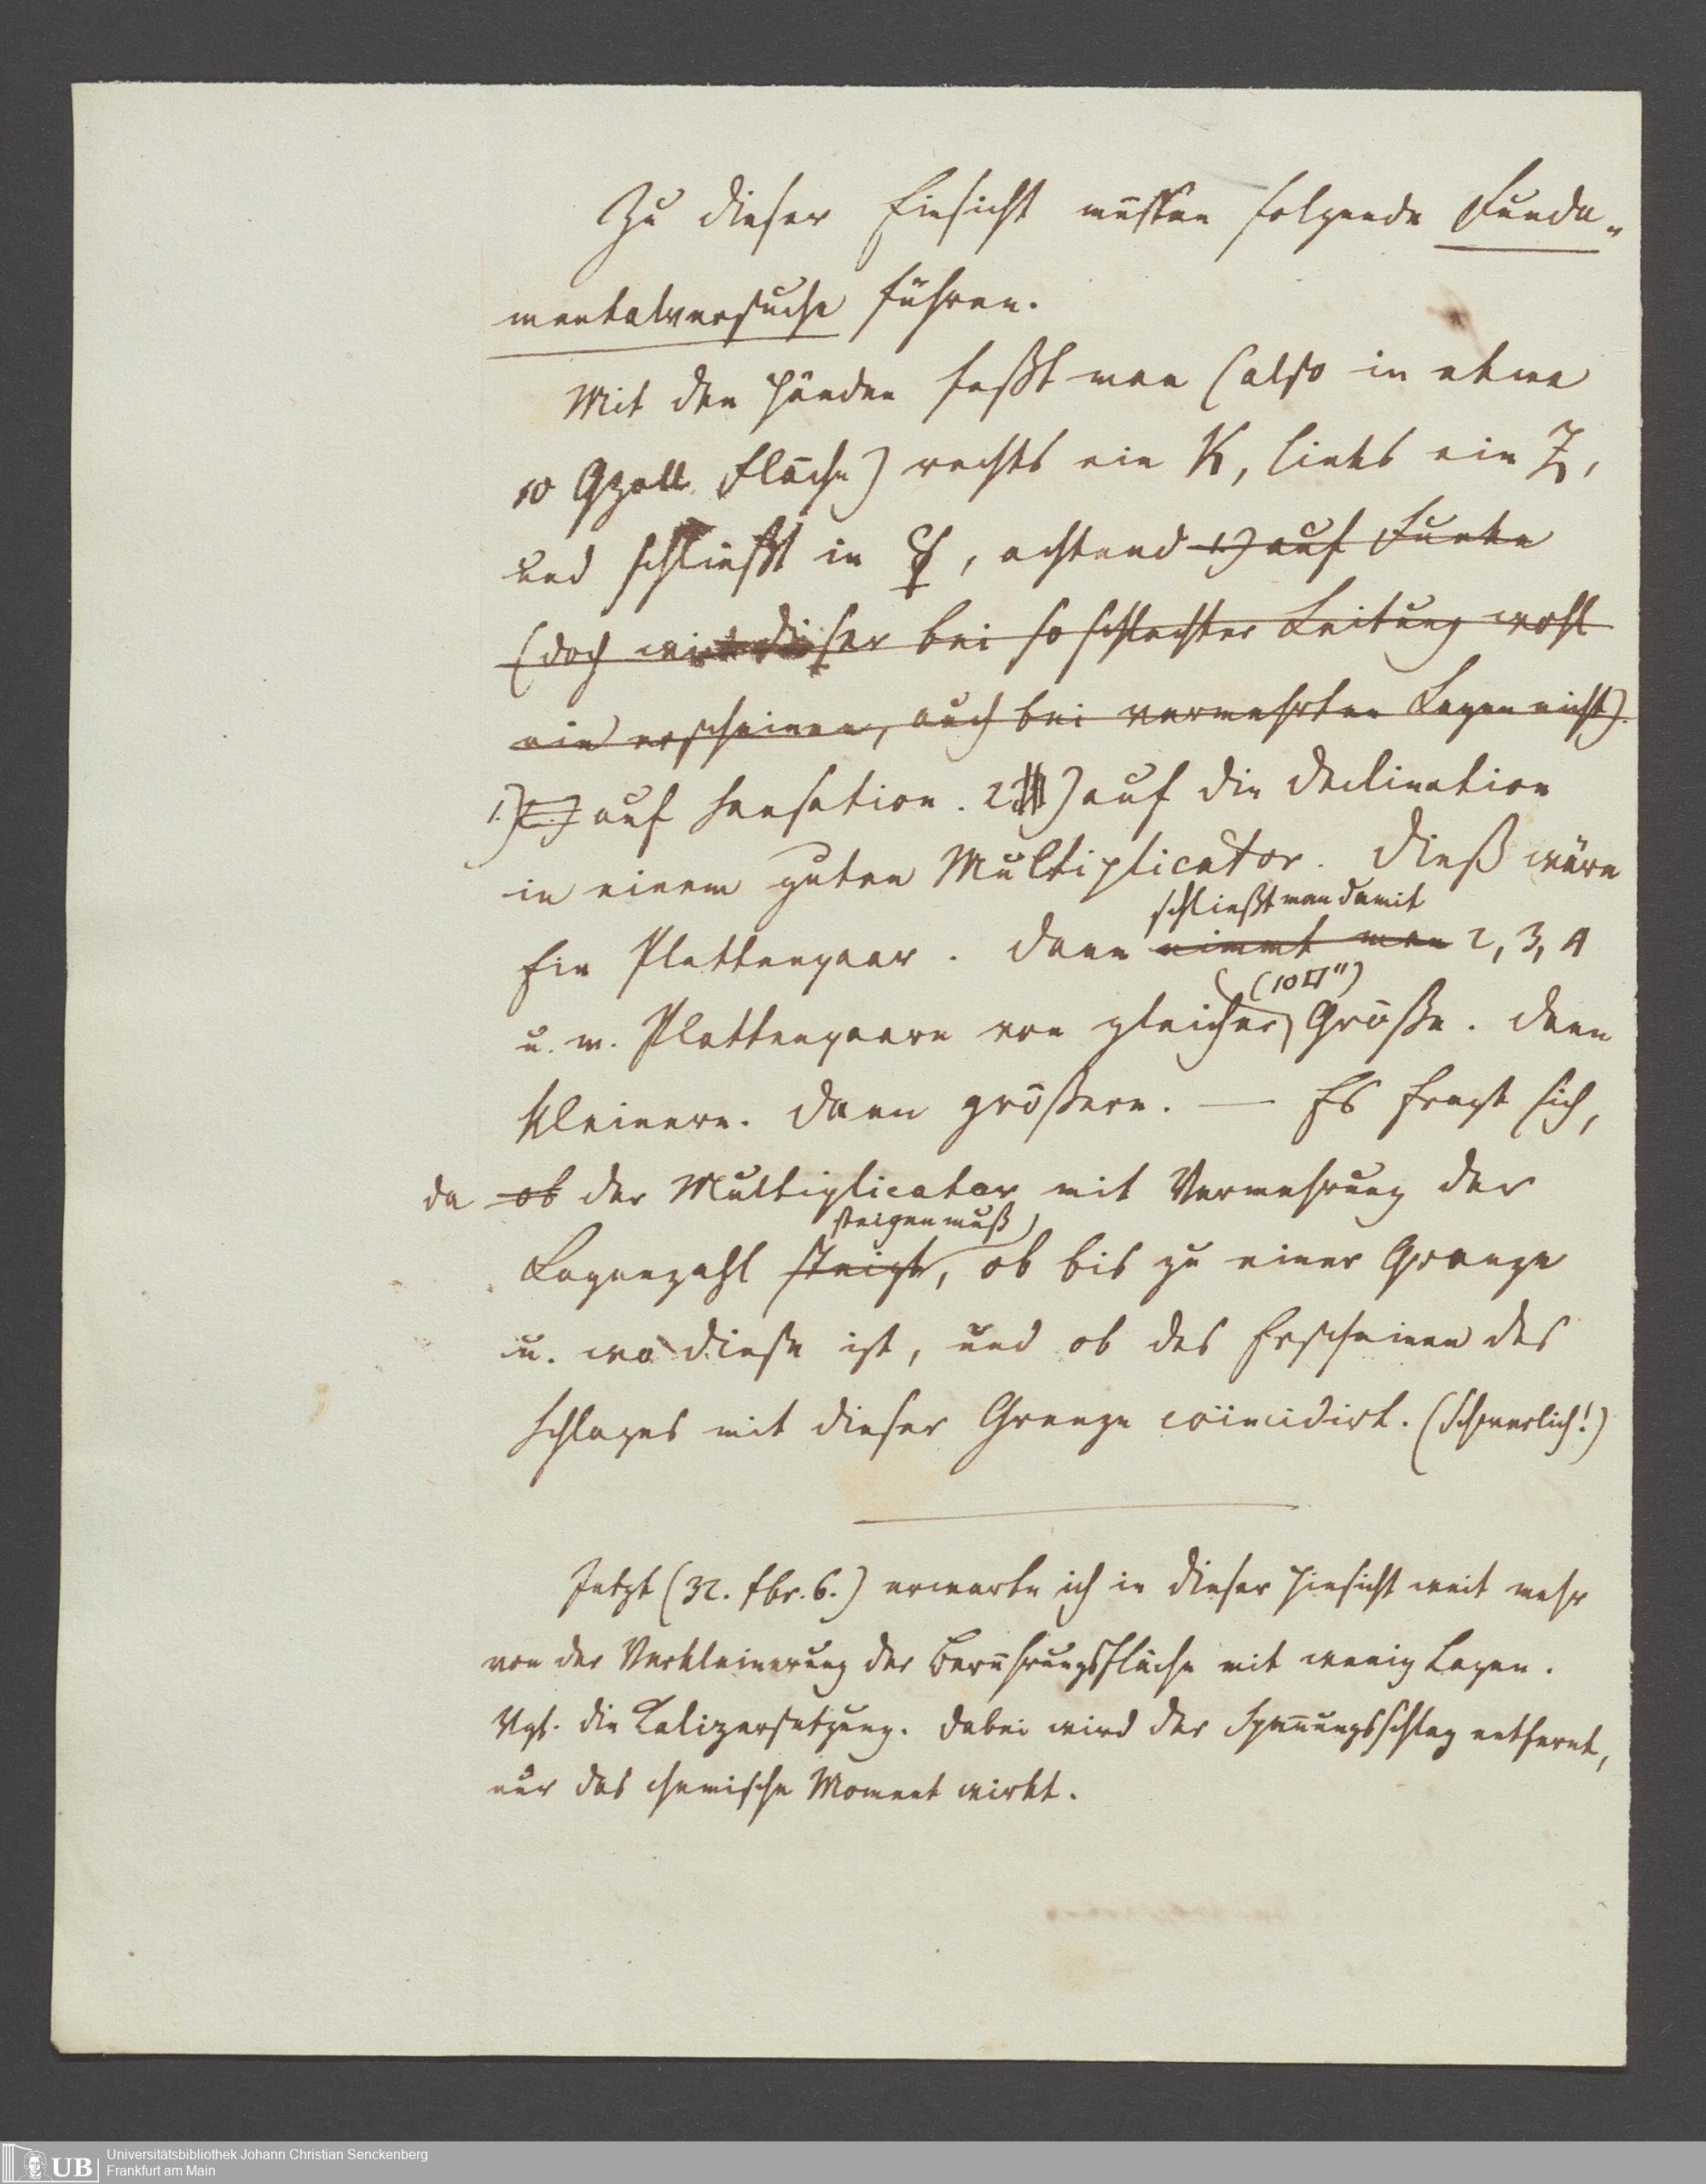 Zu dieser Einsicht müssen folgende Funda-
mentalversuche führen.
Mit den Händen faßt man (also in etwa
10 Qzoll Fläche) rechts ein K, links ein Z,
und schließt in ☿, achtend 1.) auf Funke
(doch wird dieser bei so schlechter Leitung wohl
nie erscheinen, auch bei vermehrten Lagen nicht).
1.) auf Sensation. 2) auf die Declination
in einem guten Multiplicator. Dieß wäre
schließt man damit
Ein Plattenpaar. Dann nimmt man 2, 3, 4
(10□")
u. m. Plattenpaare von gleicher Größe. Dann
kleinere. Dann größere. — Es fragt sich,
da ob der Multiplicator mit Vermehrung der
steigen muß
Lagenzahl steigt, ob bis zu einer Grenze
u. wo diese ist, und ob das Erscheinen des
Schlages mit dieser Grenze coïncidirt. (Schwerlich!)
Jetzt (32. fbr. 6.) erwarte ich in dieser Hinsicht weit mehr
von der Verkleinerung der Berührungsfläche mit wenig Lagen.
Vgl. die Kalizersetzung. Dabei wird der Spannungsschlag entfernt,
nur das chemische Moment wirkt.
UB
Universitätsbibliothek Johann Christian Senckenberg
Frankfurt am Main